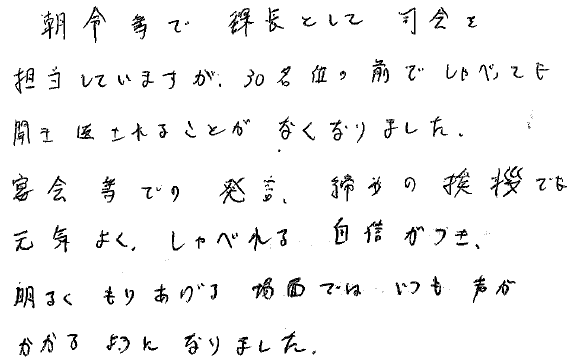 朝令等で 課長として 司会を
担当していますが、30名位の前でしゃべっても
聞き返されることがなくなりました。
宴会等での発言、締めの挨拶でも
元気よく、しゃべれる自信がつき、
明るくもりあげる場面ではいつも声が
かかるようになりました。